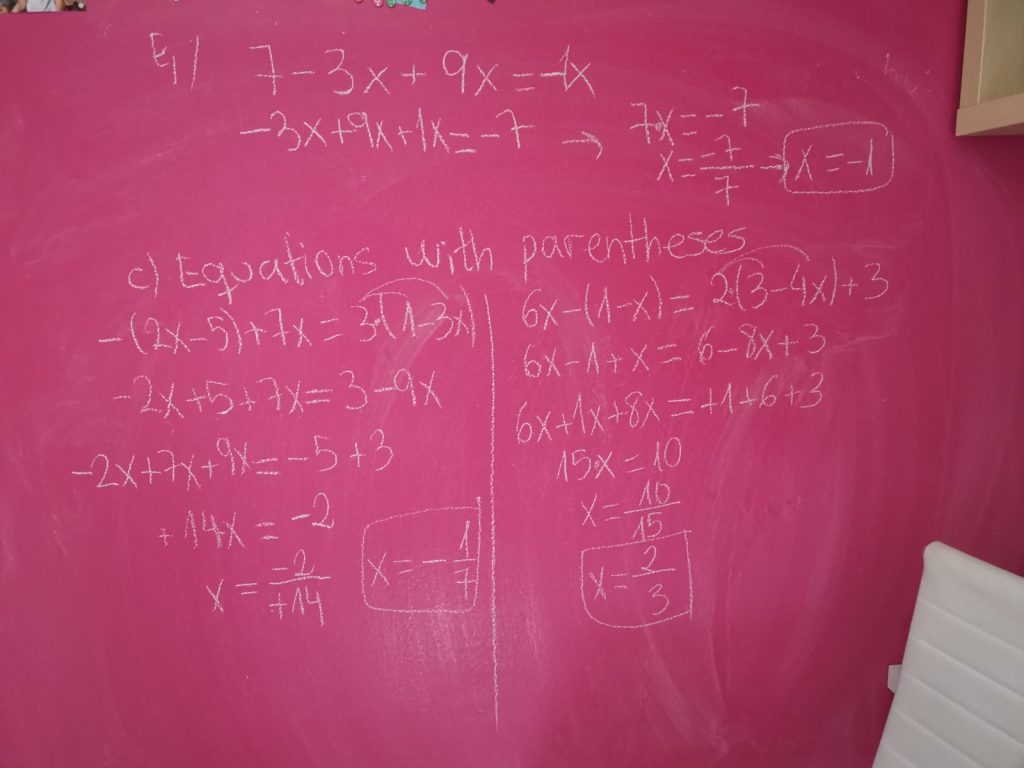 E1) 7-3x+9x=-1x
-3x+9x+1x=-7 → 7x=-7
x=-7/7 → x=-1
c) Equations with parentheses
-(2x-5)+7x=3·(1-3x)
-2x+5+7x=3-9x
-2x+7x+9x=-5+3
+14x=-2
x=-2/+14
x=-1/7
6x-(1-x)=2(3-4x)+3
6x-1+x=6-8x+3
6x+1x+8x=+1+6+3
15x=10
x=10/15
x=2/3